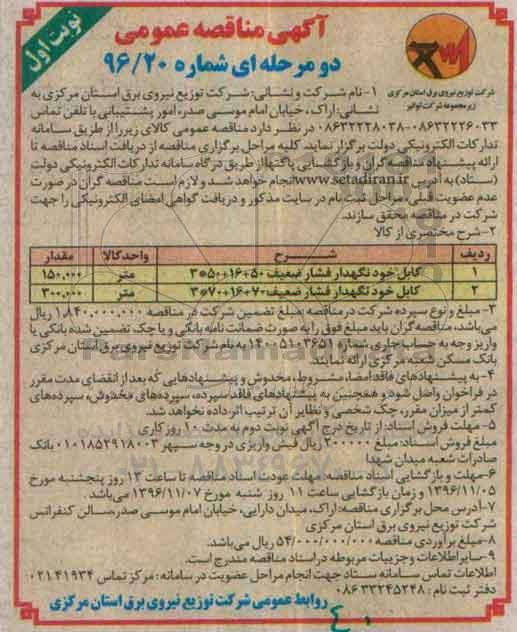 نوبت اول
آگهی مناقصه عمومی
دو مرحله ای شماره ۹۶/۲۰
شرکت توزیع نیروی برق استان مرکزی
زیر مجموعه شرکت توانیر
۱- نام شرکت و نشانی: شرکت توزیع نیروی برق استان مرکزی به
نشانی: اراک، خیابان امام موسی صدر، امور پشتیبانی با تلفن تماس
۰۸۶۳۲۲۲۶۰۳۳-۰۸۶۳۲۲۲۸۰۳۸ در نظر دارد مناقصه عمومی کالای زیر را از طریق سامانه
تدارکات الکترونیکی دولت برگزار نماید. کلیه مراحل برگزاری مناقصه از دریافت اسناد مناقصه تا
ارائه پیشنهاد مناقصه گران و بازگشایی پاکتها از طریق درگاه سامانه تدارکات الکترونیکی دولت
(ستاد) به آدرس www.setadiran.ir انجام خواهد شد و لازم است مناقصه گران در صورت
عدم عضویت قبلی، مراحل ثبت نام در سایت مذکور و دریافت گواهی امضای الکترونیکی را جهت
شرکت در مناقصه محقق سازند.
۲- شرح مختصری از کالا
ردیف شرح واحد کالا مقدار
۱ کابل خود نگهدار فشار ضعیف ۵۰+۱۶+۵۰*۳ متر ۱۵۰,۰۰۰
۲ کابل خود نگهدار فشار ضعیف ۷۰+۱۶+۷۰*۳ متر ۳۰۰,۰۰۰
۳- مبلغ و نوع سپرده شرکت در مناقصه: مبلغ تضمین شرکت در مناقصه ۱,۸۴۰,۰۰۰,۰۰۰ ریال
می‌باشد، مناقصه گران باید مبلغ فوق را به صورت ضمانت نامه بانکی و یا چک تضمین شده بانکی یا
واریز وجه به حساب جاری شماره ۱۴۰۰۵۱۰۳۶۵۱ به نام شرکت توزیع نیروی برق استان مرکزی
بانک مسکن شعبه مرکزی ارائه نمایند.
۴- به پیشنهادهای فاقد امضاء، مشروط، مخدوش و پیشنهادهایی که بعد از انقضای مدت مقرر
در فراخوان واصل شود و همچنین به پیشنهادهای فاقد سپرده، سپرده‌های مخدوش، سپرده‌های
کمتر از میزان مقرر، چک شخصی و نظایر آن ترتیب اثر داده نخواهد شد.
۵- مهلت فروش اسناد: از تاریخ درج آگهی نوبت دوم به مدت ۱۰ روز کاری
مبلغ فروش اسناد: مبلغ ۲۰۰۰۰۰ ریال فیش واریزی در وجه سپهر ۰۱۰۱۸۵۲۹۱۸۰۰۳ بانک
صادرات شعبه میدان شهدا
۶- مهلت و بازگشایی اسناد مناقصه: مهلت عودت اسناد مناقصه تا ساعت ۱۳ روز پنجشنبه مورخ
۱۳۹۶/۱۱/۰۵ و زمان بازگشایی ساعت ۱۱ روز شنبه مورخ ۱۳۹۶/۱۱/۰۷ می‌باشد.
۷- آدرس محل برگزاری مناقصه: اراک، میدان دارایی، خیابان امام موسی صدر، سالن کنفرانس
شرکت توزیع نیروی برق استان مرکزی
۸- مبلغ برآوردی مناقصه ۵۴/۰۰۰/۰۰۰/۰۰۰ ریال می‌باشد.
۹- سایر اطلاعات و جزییات مربوطه در اسناد مناقصه مندرج است.
اطلاعات تماس سامانه ستاد جهت انجام مراحل عضویت در سامانه: مرکز تماس ۰۲۱۴۱۹۳۴
دفتر ثبت نام: ۰۸۶۳۳۲۴۵۲۴۸
روابط عمومی شرکت توزیع نیروی برق استان مرکزی